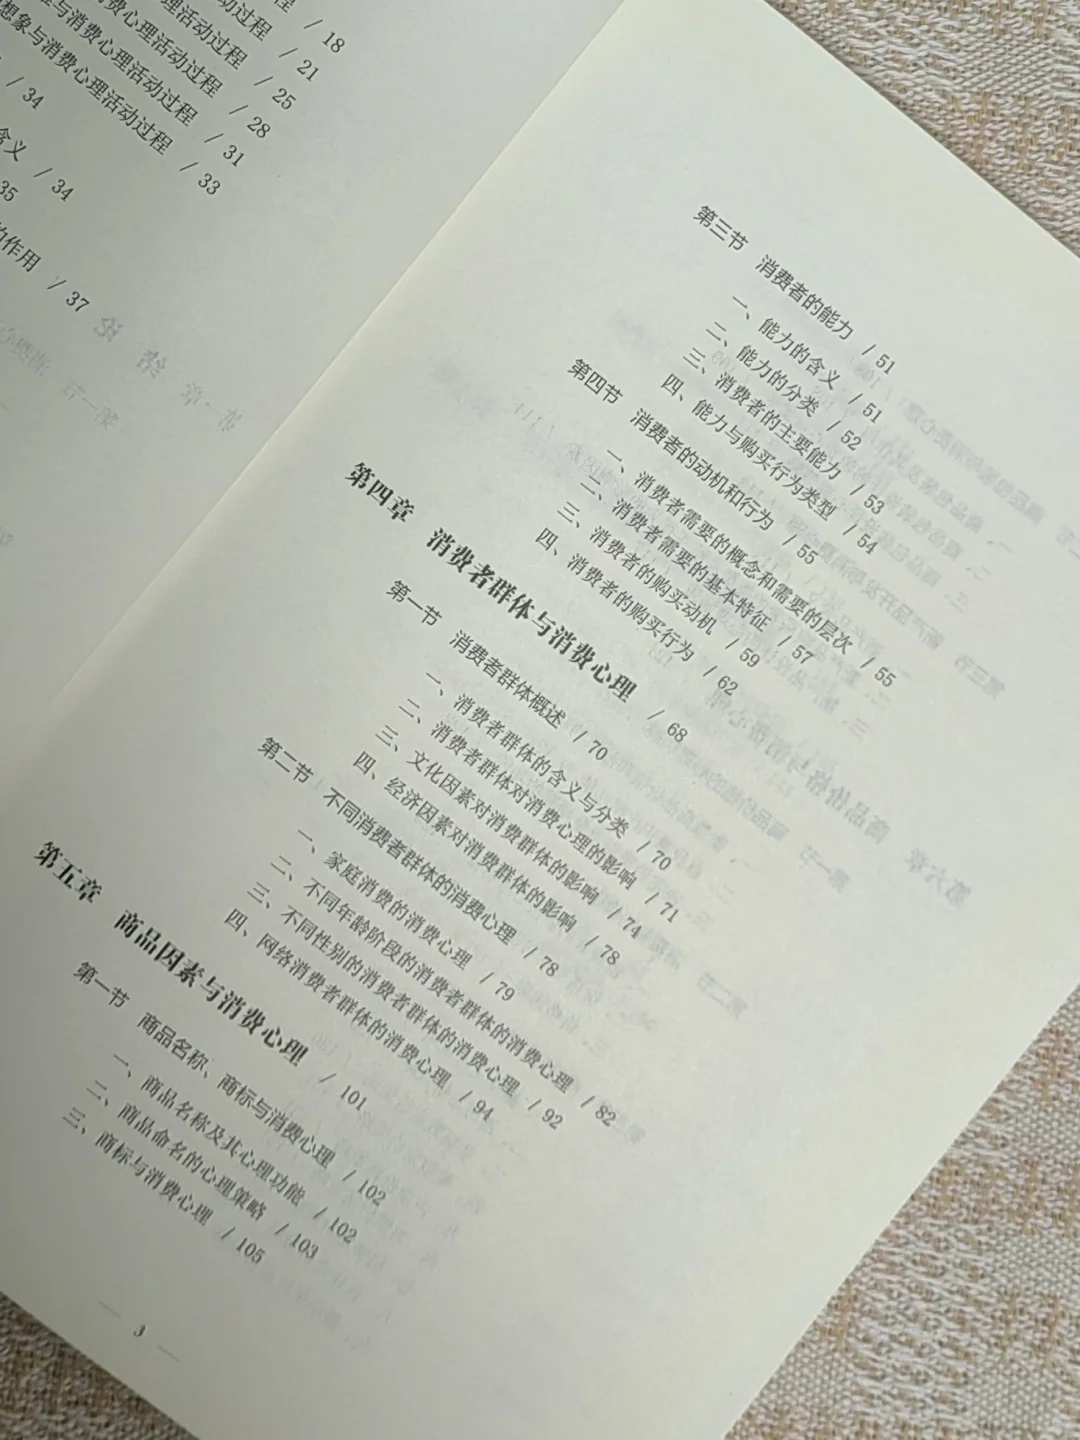 动过程 / 18
理活动过程 / 21
消费心理活动过程 / 25
与消费心理活动过程 / 28
与消费心理活动过程 / 31
想象与消费心理活动过程 / 33
/ 34
含义 / 34
35
的作用 / 37
第三节 消费者的能力 / 51
一、能力的含义 / 51
二、能力的分类 / 52
三、消费者的主要能力 / 53
四、能力与购买行为类型 / 54
第四节 消费者的动机和行为 / 55
一、消费者需要的概念和需要的层次 / 55
二、消费者需要的基本特征 / 57
三、消费者的购买动机 / 59
四、消费者的购买行为 / 62
第四章 消费者群体与消费心理 / 68
第一节 消费者群体概述 / 70
一、消费者群体的含义与分类 / 70
二、消费者群体对消费心理的影响 / 71
三、文化因素对消费群体的影响 / 74
四、经济因素对消费群体的影响 / 78
第二节 不同消费者群体的消费心理 / 78
一、家庭消费的消费心理 / 79
二、不同年龄阶段的消费者群体的消费心理 / 82
三、不同性别的消费者群体的消费心理 / 92
四、网络消费者群体的消费心理 / 94
第五章 商品因素与消费心理 / 101
第一节 商品名称、商标与消费心理 / 102
一、商品名称及其心理功能 / 102
二、商品命名的心理策略 / 103
三、商标与消费心理 / 105
— 3 —